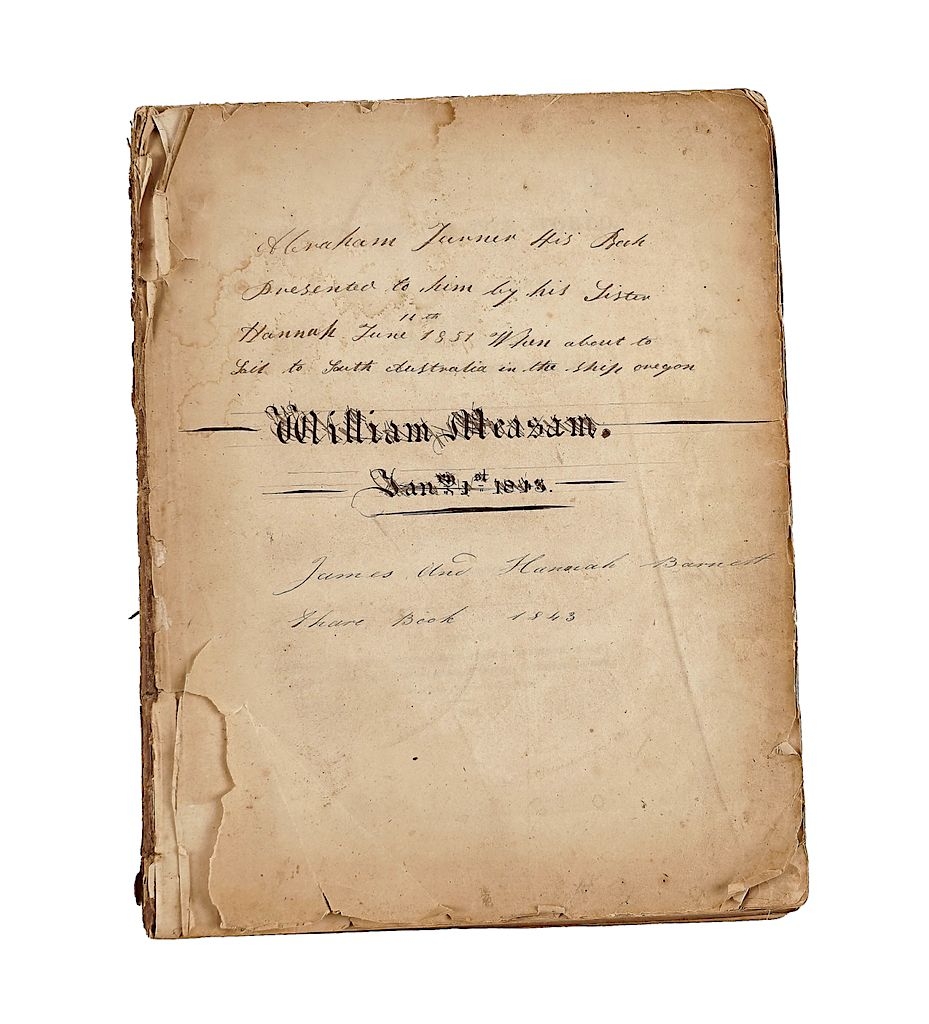 Abraham Turner His Book
presented to him by his Sister
Hannah June 11th 1851 When about to
Sail to South Australia in the ship oregon
William Measam.
Jany 1st 1843.
James And Hannah Barnett
Thare Book 1843